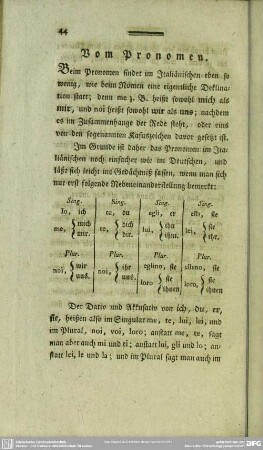 44
Vom Pronomen.
Beim Pronomen findet im Italiänischen eben so
wenig, wie beim Nomen eine eigentliche Deklina-
tion statt; denn me z. B. heißt sowohl mich als
mir, und noi heißt sowohl wir als uns; nachdem
es im Zusammenhange der Rede steht, oder eins
von den sogenannten Kasuszeichen davor gesetzt ist.
Im Grunde ist daher das Pronomen im Ita-
liänischen noch einfacher wie im Deutschen, und
läßt sich leicht ins Gedächtniß fassen, wenn man sich
nur erst folgende Nebeneinanderstellung bemerkt:
Sing. Sing. Sing. Sing.
Io, ich te, du egli, er ella, sie
me, mich mir. te, dich dir. lui, ihn ihm. lei, sie ihr.
Plur. Plur. Plur. Plur.
noi, wir uns. voi, ihr euch. eglino, sie elleno, sie
loro sie ihnen loro sie ihnen
Der Dativ und Akkusativ von ich, du, er,
sie, heißen also im Singular me, te, lui, lei, und
im Plural, noi, voi, loro; anstatt me, te, sagt
man aber auch mi und ti; anstatt lui, gli und lo; an-
statt lei, le und la; und im Plural sagt man auch im